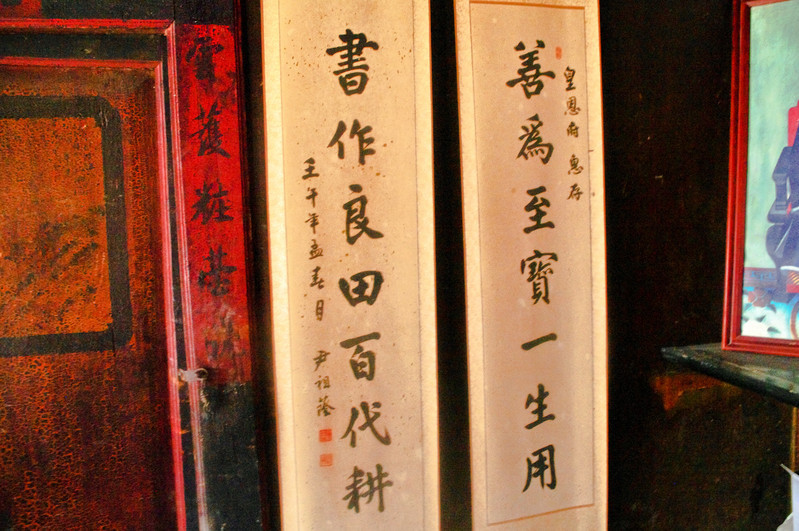 皇恩府 惠存
善爲至寶一生用
書作良田百代耕
壬午年孟春月 尹祖蔭